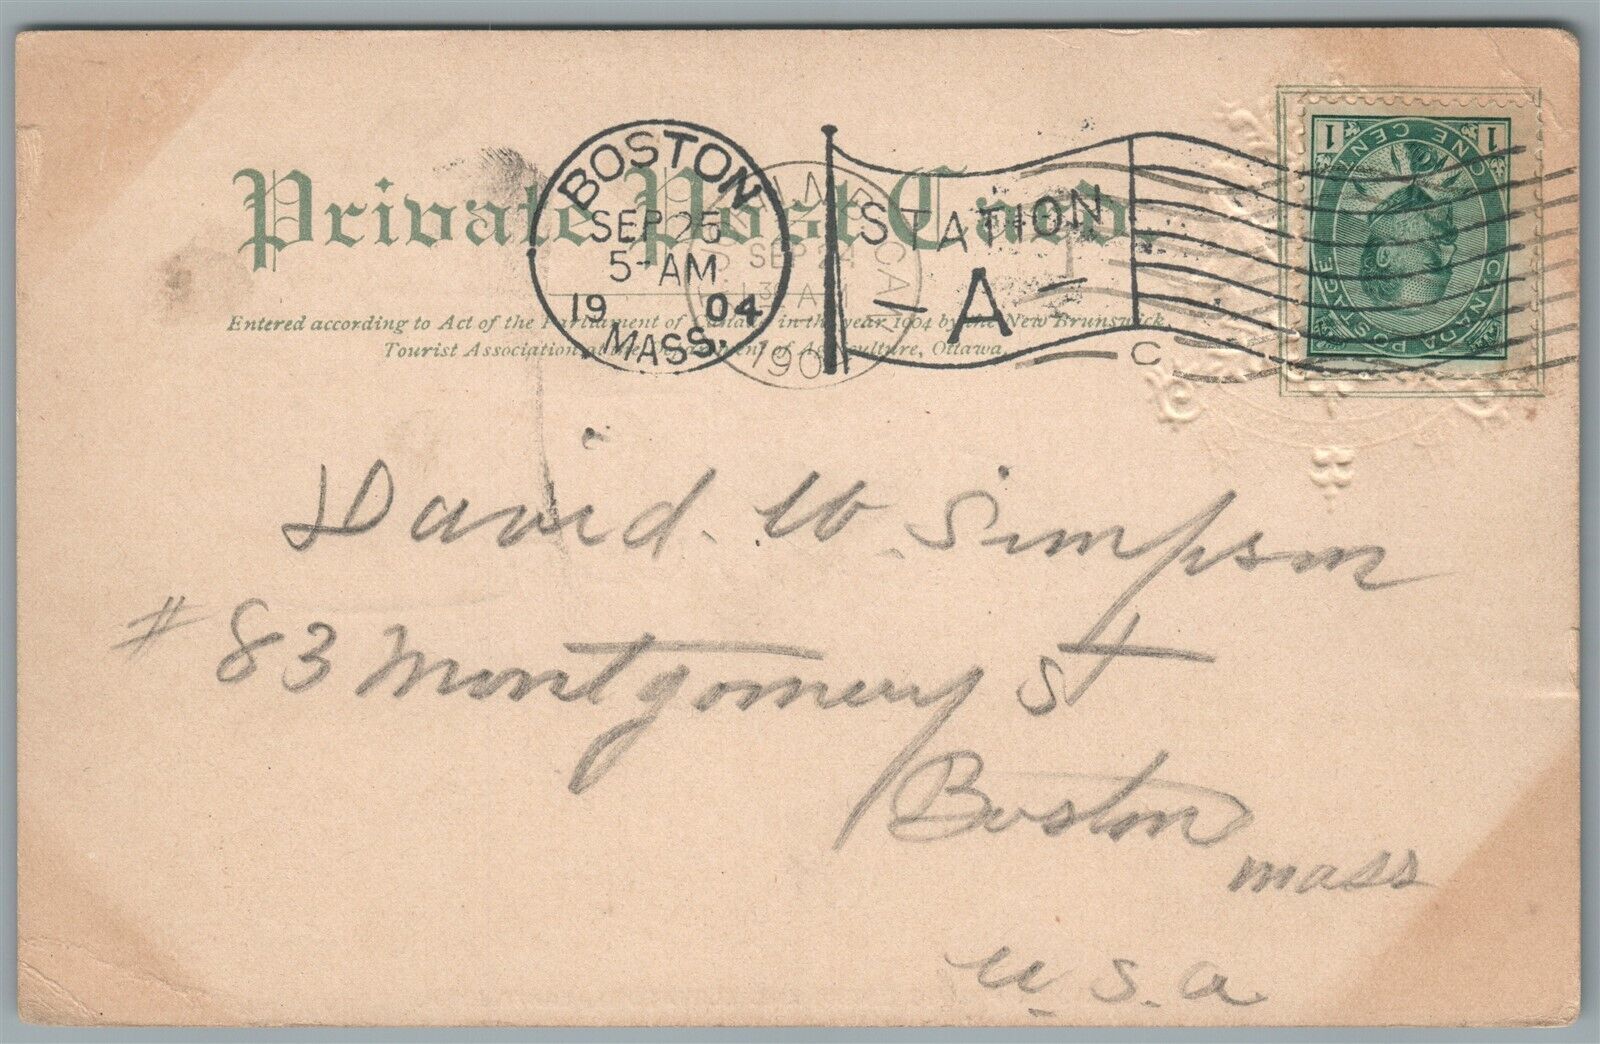 Private Post Card
BOSTON
SEP 25
5-AM
19 04
MASS.
STATION
A
C
SEP 24
AM
Entered according to Act of the Parliament of Canada, in the year 1904 by the New Brunswick
Tourist Association at the Department of Agriculture, Ottawa.
CANADA POSTAGE
ONE CENT
1 1
David. W. Simpson
# 83 Montgomery St
Boston
mass
U.S.a